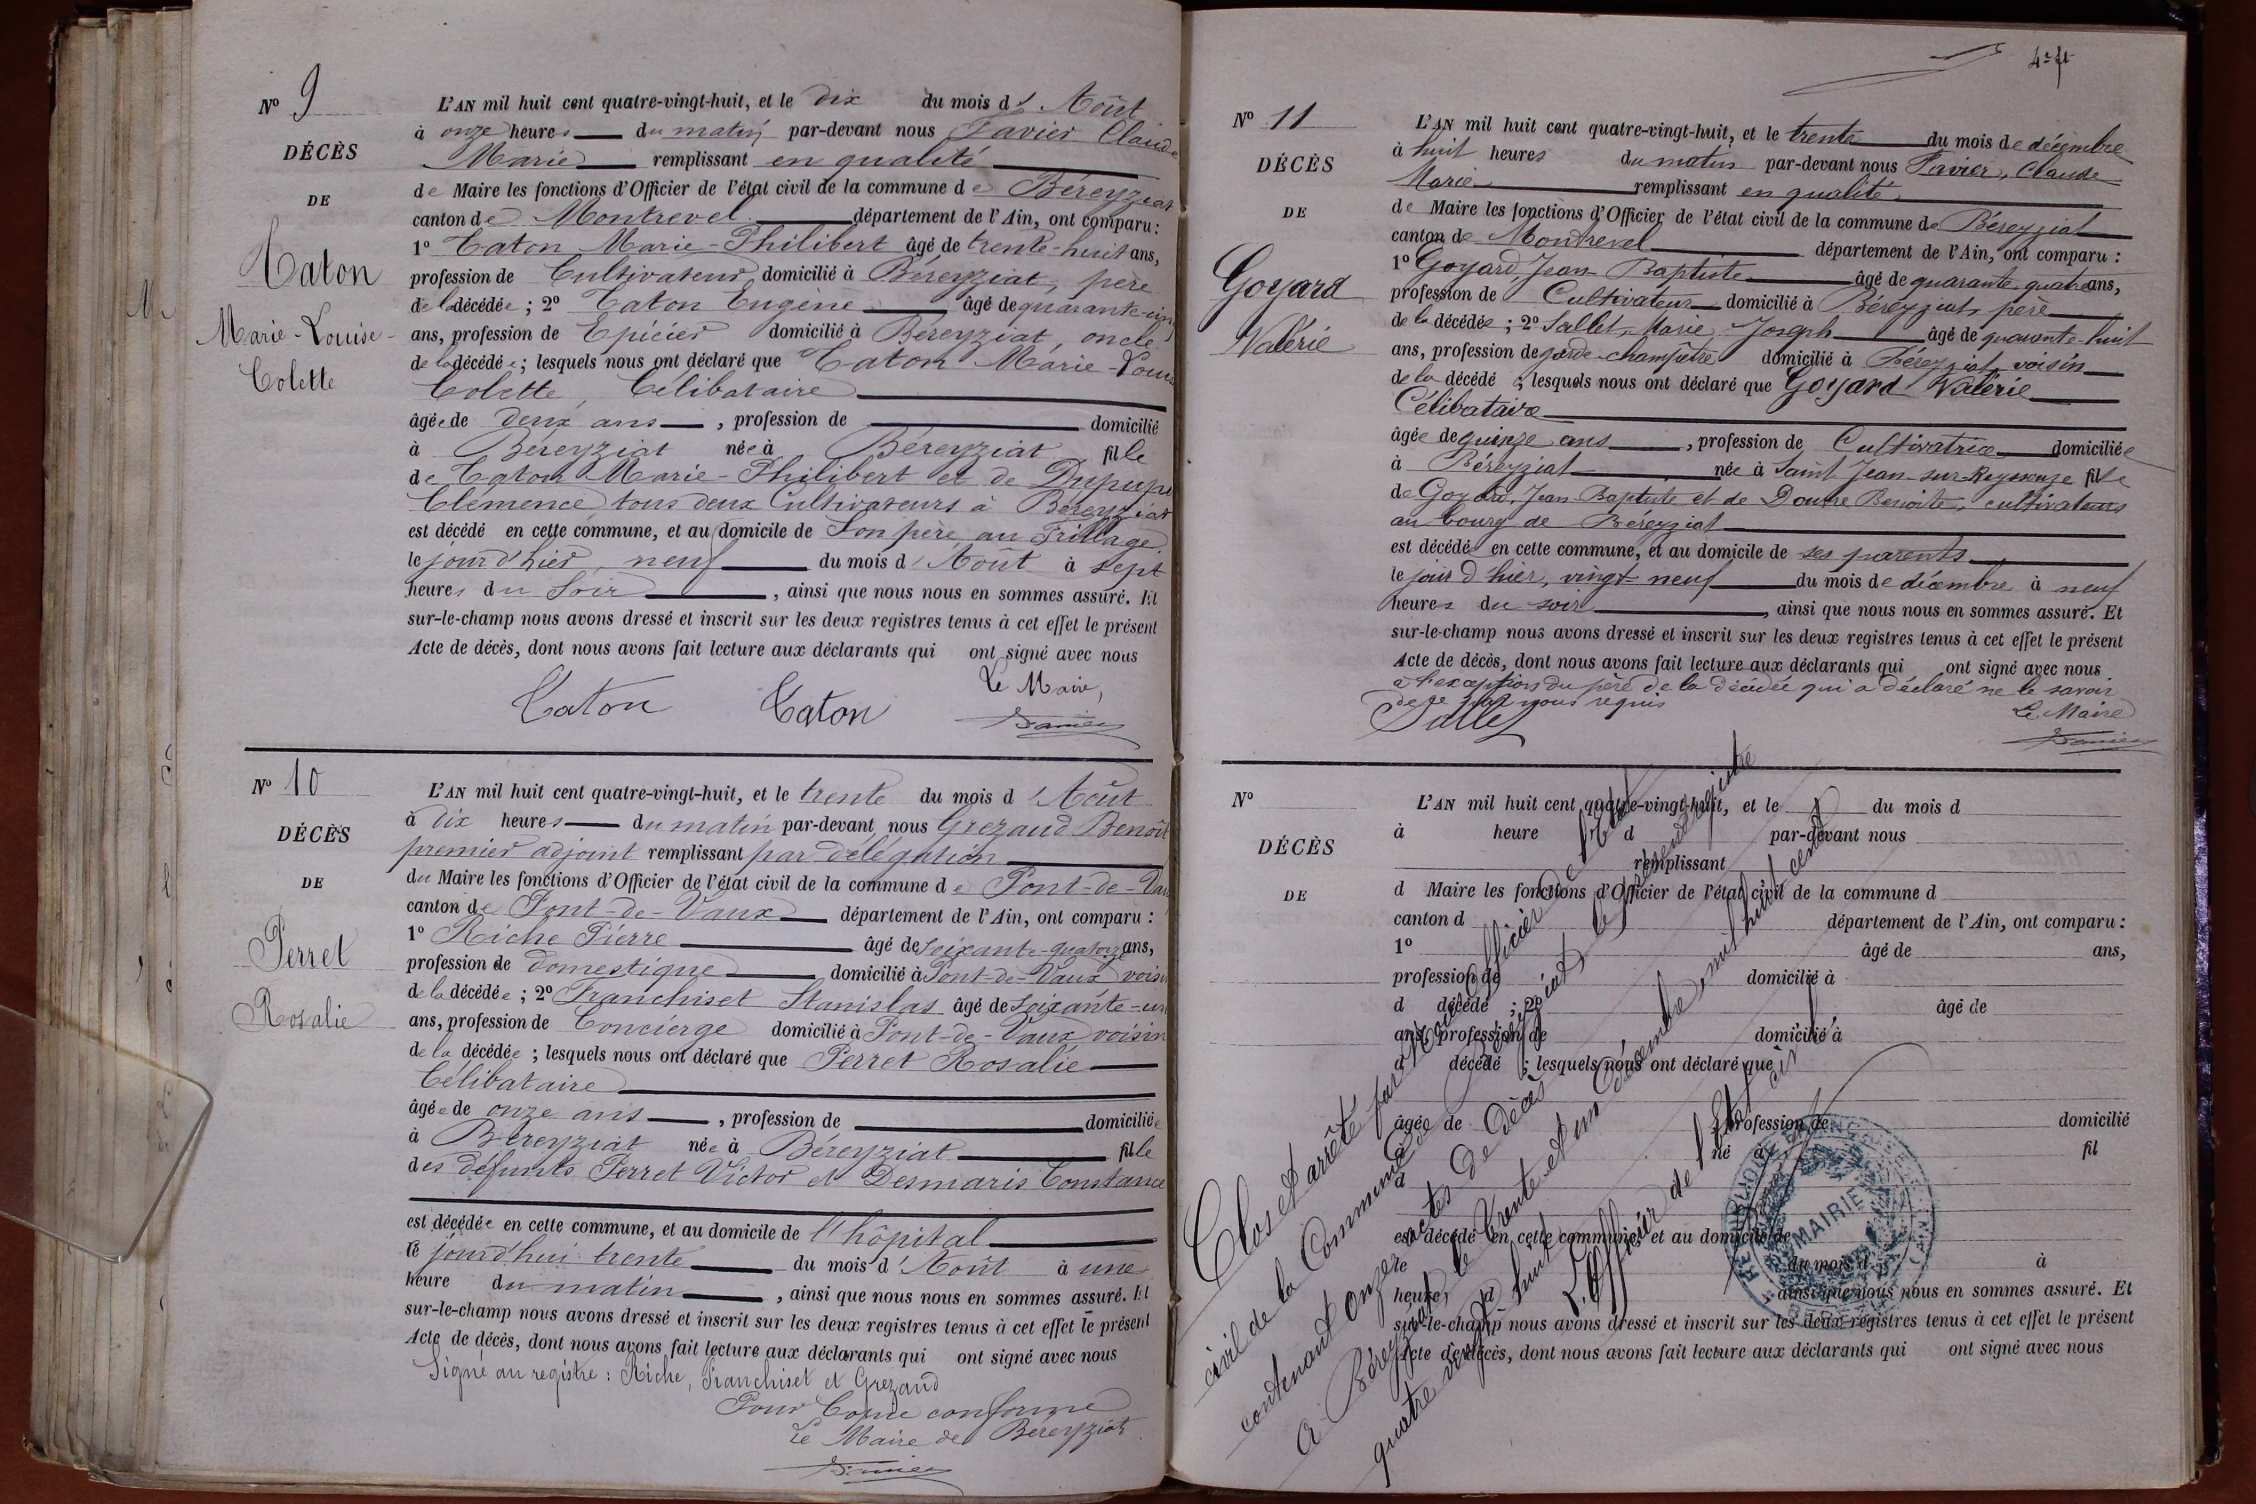 N° 9
DÉCÈS
DE
Caton
Marie-Louise-
Colette
L'AN mil huit cent quatre-vingt-huit, et le dix du mois d'Août
à onze heures du matin par-devant nous Favier Claude
Marie remplissant en qualité
de Maire les fonctions d'Officier de l'état civil de la commune de Béreyziat
canton de Montrevel département de l'Ain, ont comparu :
1° Caton Marie-Philibert âgé de trente-huit ans,
profession de Cultivateur domicilié à Béreyziat, père
de la décédée ; 2° Caton Eugène âgé de quarante-cinq
ans, profession de Epicier domicilié à Béreyziat, oncle
de la décédée ; lesquels nous ont déclaré que Caton Marie-Louise
Colette, Célibataire
âgée de deux ans , profession de domicilié
à Béreyziat née à Béreyziat fille
de Caton Marie-Philibert et de Dupupet
Clémence, tous deux Cultivateurs à Béreyziat
est décédé en cette commune, et au domicile de Son père, au Trillage
le jour d'hier, neuf du mois d'Août à sept
heures du Soir , ainsi que nous nous en sommes assuré. Et
sur-le-champ nous avons dressé et inscrit sur les deux registres tenus à cet effet le présent
Acte de décès, dont nous avons fait lecture aux déclarants qui ont signé avec nous
Le Maire,
Caton Caton Favier
N° 10
DÉCÈS
DE
Perret
Rosalie
L'AN mil huit cent quatre-vingt-huit, et le trente du mois d'Août
à dix heures du matin par-devant nous Grezaud Benoît
premier adjoint remplissant par délégation
du Maire les fonctions d'Officier de l'état civil de la commune de Pont-de-Vaux
canton de Pont-de-Vaux département de l'Ain, ont comparu :
1° Riche Pierre âgé de soixante-quatorze ans,
profession de domestique domicilié à Pont-de-Vaux voisin
de la décédée ; 2° Franchiset Stanislas âgé de soixante-un
ans, profession de Concierge domicilié à Pont-de-Vaux voisin
de la décédée ; lesquels nous ont déclaré que Perret Rosalie
Célibataire
âgée de onze ans , profession de domiciliée
à Béreyziat née à Béreyziat fille
des défunts Perret Victor et Desmaris Constance
est décédée en cette commune, et au domicile de l'hôpital
le jourd'hui trente du mois d'Août à une
heure du matin , ainsi que nous nous en sommes assuré. Et
sur-le-champ nous avons dressé et inscrit sur les deux registres tenus à cet effet le présent
Acte de décès, dont nous avons fait lecture aux déclarants qui ont signé avec nous
Signé au registre : Riche, Franchiset et Grezaud
Pour Copie conforme
Le Maire de Béreyziat
Favier
N° 11
DÉCÈS
DE
Goyard
Valérie
L'AN mil huit cent quatre-vingt-huit, et le trente du mois de décembre
à huit heures du matin par-devant nous Favier, Claude
Marie remplissant en qualité
de Maire les fonctions d'Officier de l'état civil de la commune de Béreyziat
canton de Montrevel département de l'Ain, ont comparu :
1° Goyard, Jean-Baptiste âgé de quarante quatre ans,
profession de Cultivateur domicilié à Béréyziat, père
de la décédée ; 2° Sallet, Marie Joseph âgé de quarante-huit
ans, profession de garde-champêtre domicilié à Béreyziat, voisin
de la décédé ; lesquels nous ont déclaré que Goyard Valérie
Célibataire
âgée de quinze ans , profession de Cultivatrice domiciliée
à Béreyziat née à Saint Jean-sur-Reyssouze fille
de Goyard, Jean-Baptiste et de Doutre Benoite, cultivateurs
au bourg de Béreyziat
est décédé en cette commune, et au domicile de ses parents
le jour d'hier, vingt-neuf du mois de décembre à neuf
heures du soir , ainsi que nous nous en sommes assuré. Et
sur-le-champ nous avons dressé et inscrit sur les deux registres tenus à cet effet le présent
Acte de décès, dont nous avons fait lecture aux déclarants qui ont signé avec nous
à l'exception du père de la décédée qui a déclaré ne le savoir
de ce nous requis
Sallet Le Maire
Favier
N°
DÉCÈS
DE
L'AN mil huit cent quatre-vingt-huit, et le du mois d
à heure d par-devant nous
remplissant
d Maire les fonctions d'Officier de l'état civil de la commune d
canton d département de l'Ain, ont comparu :
1° âgé de ans,
profession de domicilié à
d décédé ; 2° âgé de
ans, profession de domicilié à
d décédé ; lesquels nous ont déclaré que
âgé de , profession de domicilié
à né à fil
d
est décédé en cette commune, et au domicile de
le du mois d à
heure d , ainsi que nous nous en sommes assuré. Et
sur-le-champ nous avons dressé et inscrit sur les deux registres tenus à cet effet le présent
Acte de décès, dont nous avons fait lecture aux déclarants qui ont signé avec nous
Clos et arrêté par Nous Officier de l'Etat
civil de la Commune de Béreyziat le présent registre
contenant onze actes de Décès
A Béreyziat le trente et un Décembre mil huit cent
quatre vingt huit
L'Officier de l'Etat civil
MAIRIE